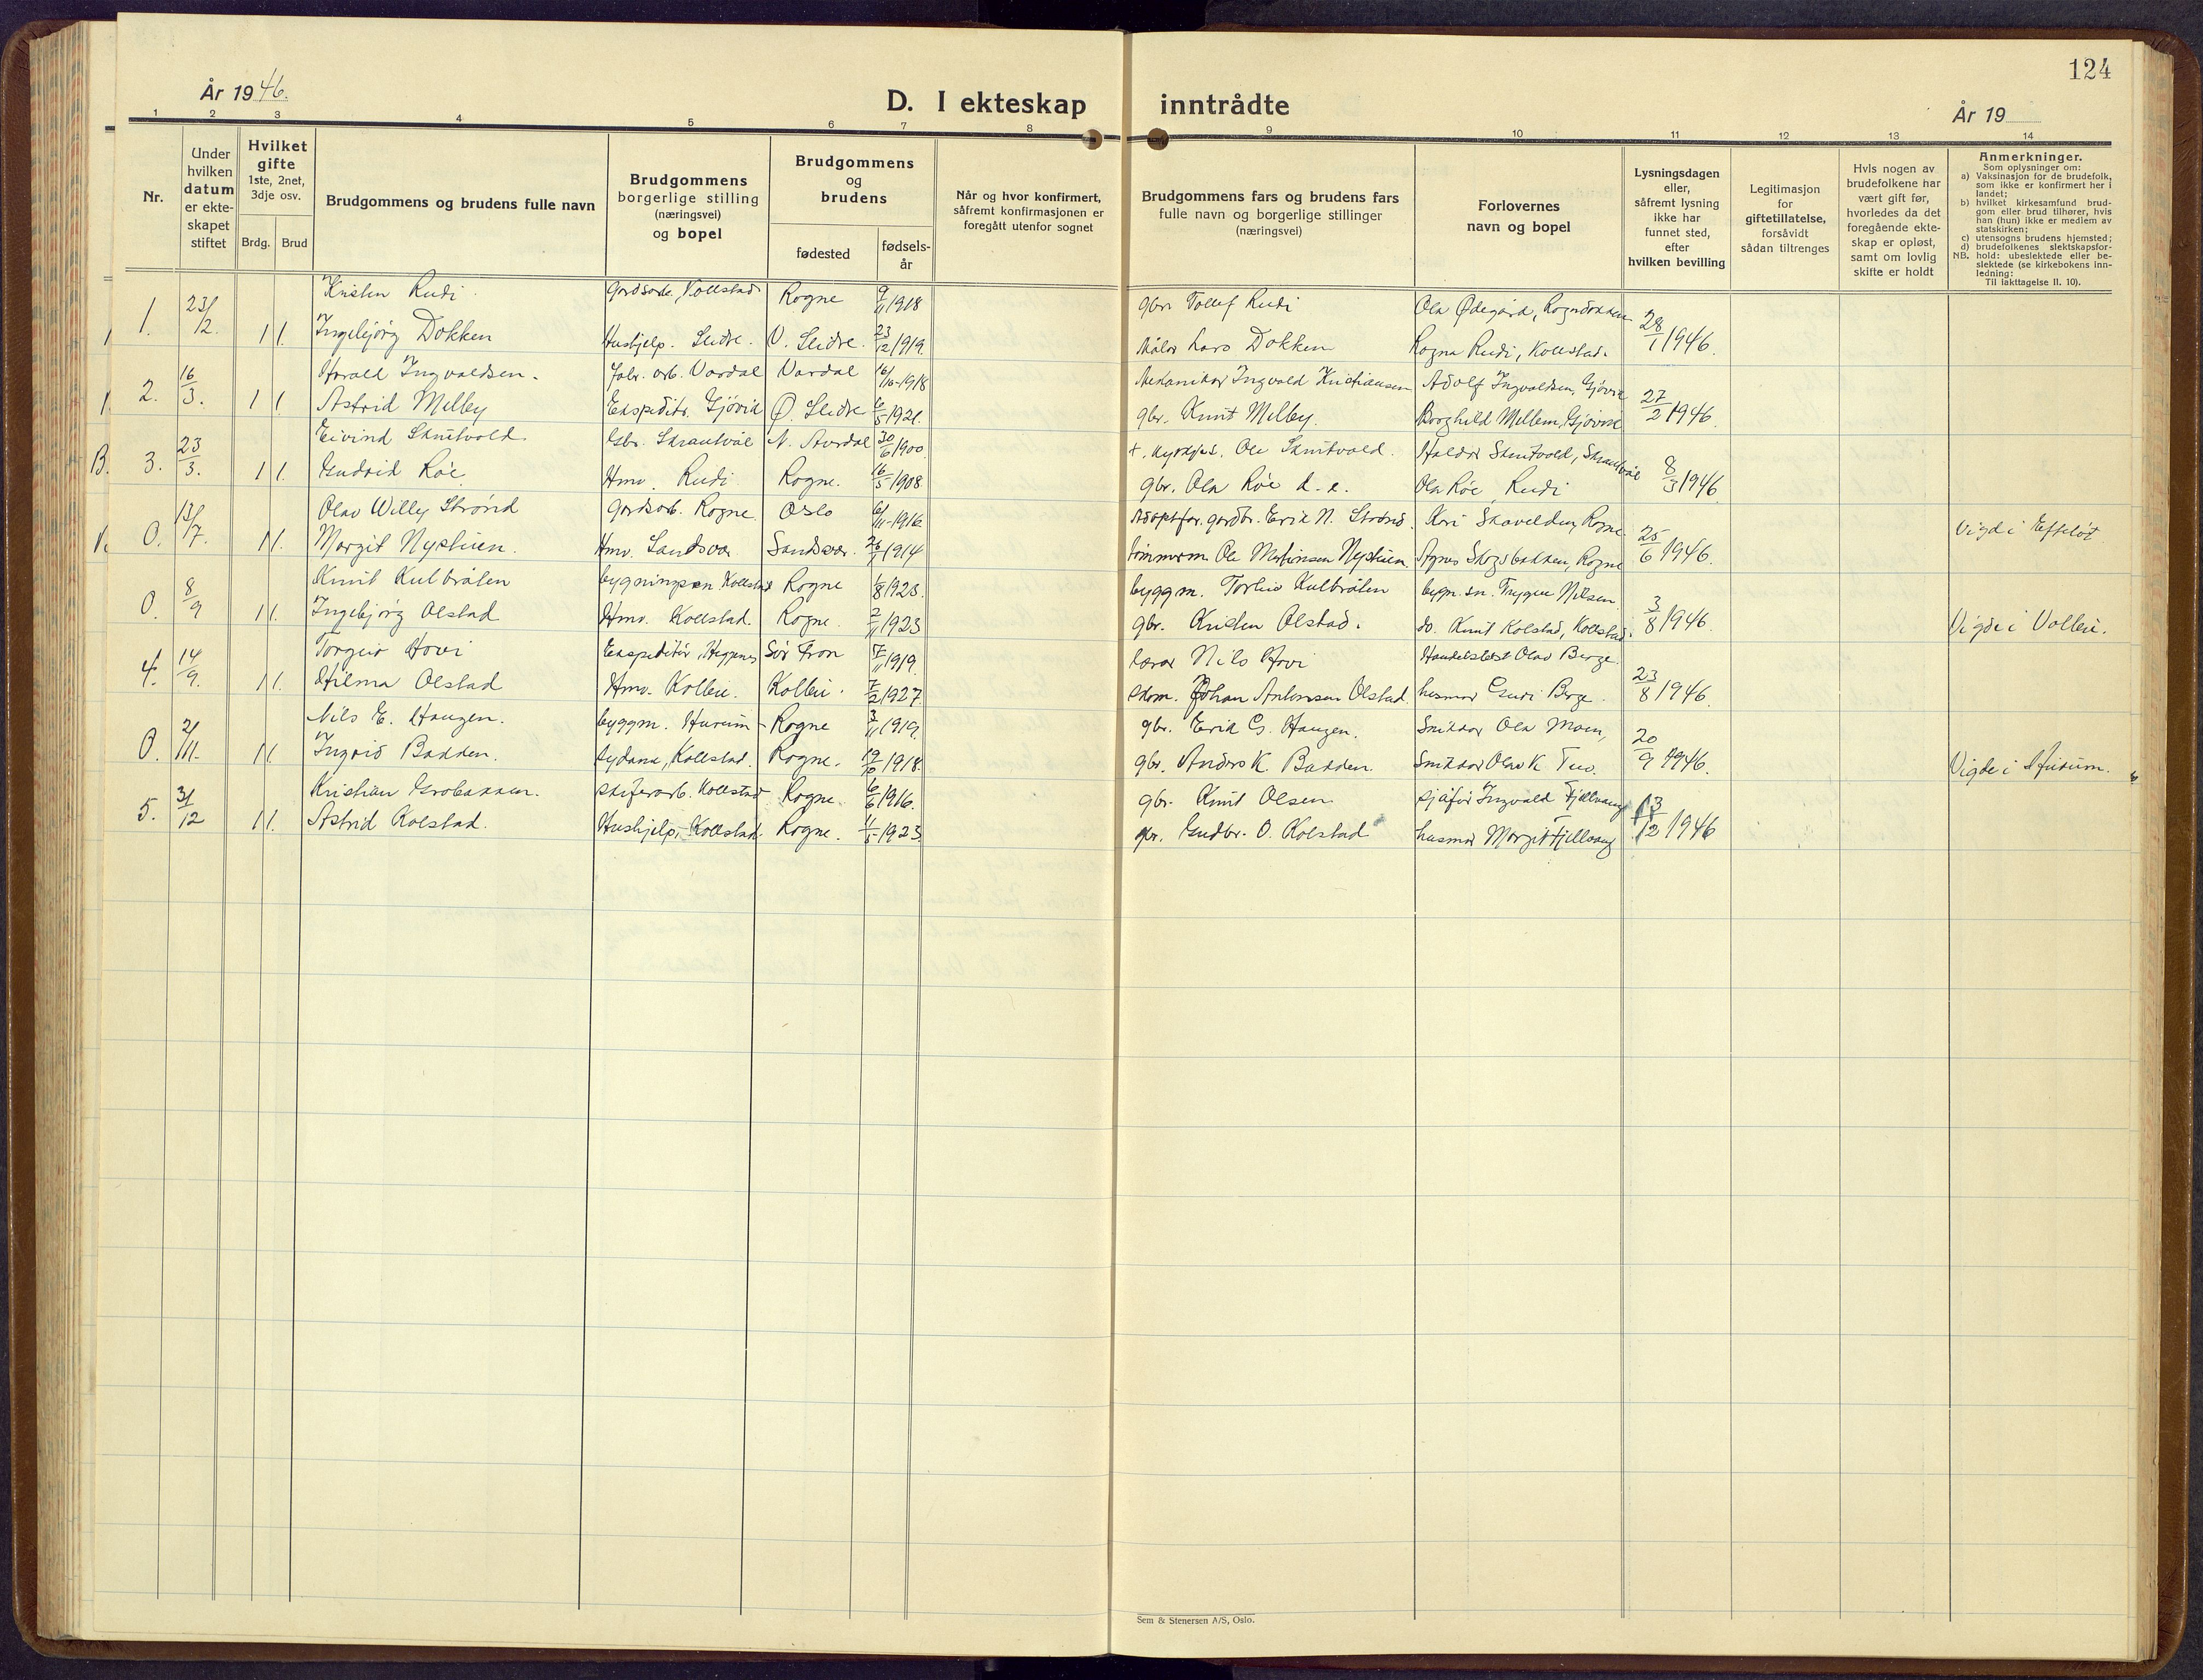 124
År 1946.
D. I ekteskap inntrådte
År 19
1 2 3 4 5 6 7 8 9 10 11 12 13 14
Nr.
Under
hvilken
datum
er ekte-
skapet
stiftet
Hvilket
gifte
1ste, 2net,
3dje osv.
Brdg. Brud
Brudgommens og brudens fulle navn
Brudgommens
borgerlige stilling
(næringsvei)
og bopel
Brudgommens
og
brudens
fødested
fødsels-
år
Når og hvor konfirmert,
såfremt konfirmasjonen er
foregått utenfor sognet
Brudgommens fars og brudens fars
fulle navn og borgerlige stillinger
(næringsvei)
Forlovernes
navn og bopel
Lysningsdagen
eller,
såfremt lysning
ikke har
funnet sted,
efter
hvilken bevilling
Legitimasjon
for
giftetillatelse,
forsåvidt
sådan tiltrenges
Hvis nogen av
brudefolkene har
vært gift før,
hvorledes da det
foregående ekte-
skap er opløst,
samt om lovlig
skifte er holdt
Anmerkninger.
Som oplysninger om:
a) Vaksinasjon for de brudefolk,
som ikke er konfirmert her i
landet;
b) hvilket kirkesamfund brud-
gom eller brud tilhører, hvis
han (hun) ikke er medlem av
statskirken;
c) utensogns brudens hjemsted;
d) brudefolkenes slektskapsfor-
NB. hold: ubeslektede eller be-
slektede (se kirkebokens inn-
ledning:
Til iakttagelse II. 10).
Kristen Rudi Gardsarb. Kollstad Rogne 9/11 1918 gbr. Tollef Rudi Ola Ødegård, Rognsbakken
1. 23/2. 1 1. Ingebjørg Dokken Hushjelp. Slidre. V. Slidre. 23/12 1919. Målar Lars Dokken Ragna Rudi, Kollstad. 28/1 1946.
Harald Ingvaldsen. Fabr. arb. Vardal Vardal 16/10-1918 Mekanikar Ingvald Kristiansen Adolf Ingvaldsen, Gjøvik
2. 16/3. 1 1. Astrid Melby Ekspeditr. Gjøvik Ø. Slidre 6/5-1921. gbr. Knut Melby. Borghild Mellem, Gjøvik 27/2 1946.
Eivind Skutvold Gbr. Skrautvål N. Aurdal 30/6 1900. Ole Skutvold. Haldor Skutvold, Skrautvål
B. 3. 23/3. 1 1. Gudrid Røe Hmv. Rudi Rogne. 16/5-1908 gbr. Ola Røe d. e. Ola Røe, Rudi 8/3 1946
Olav Willy Strønd Gardsarb. Rogne Oslo 6/11-1916 Adoptfar. gardbr. Erik N. Strønd. Kari Skavelden, Rogne
0. 13/7. 1 1. Margit Nystuen. Hmv. Sandsvær Sandsvær. 1914 tømmerm. Ole Martinsen Nystuen. Agnes Skogsbakken, Rogne 25/6 1946. Vigde i Efteløt
Knut Kulbråten bygningssn. Kollstad Rogne 1/8 1923. byggm. Torleiv Kulbråten bygn. sn. Trygve Nilsen.
0. 8/9 1 1. Ingebjørg Olstad Hmv. Kollstad. Rogne. 2/11 1923 gbr. Kristen Olstad. do. Knut Kolstad, Kollstad. 3/8 1946. Vigde i Volbu.
Torgeir Hovi Ekspeditør, Heggenes Sør Fron 7/11 1919. lærar Nils Hovi Handelsbest Olav Berge.
4. 14/9. 1 1. Hilma Olstad Hmv. Volbu. Volbu. 7/2 1927. skom. Johan Antonsen Olstad. husmor Guri Berge. 23/8 1946.
Nils E. Haugen. byggm. Hurum Rogne 3/11 1919. gbr. Erik G. Haugen. Snikkar Ola Moen,
0. 2/11. 1 1. Ingrid Bakken. sydame, Kollstad. Rogne. 19/10 1918. gbr. Anders K. Bakken. Snikkar Olav K. Tuv. 20/9 1946. Vigde i Hurum.
Kristian Grobakken. skiferarb. Kollstad Rogne. 6/6 1916. gbr. Knut Olsen sjåfør Ingvald Fjellvang
5. 31/12 1 1. Astrid Kolstad. Hushjelp, Kollstad. Rogne. 1923 gbr. Gudbr. O. Kolstad husmor Margit Fjellvang 13/12 1946
Sem & Stenersen A/S, Oslo.